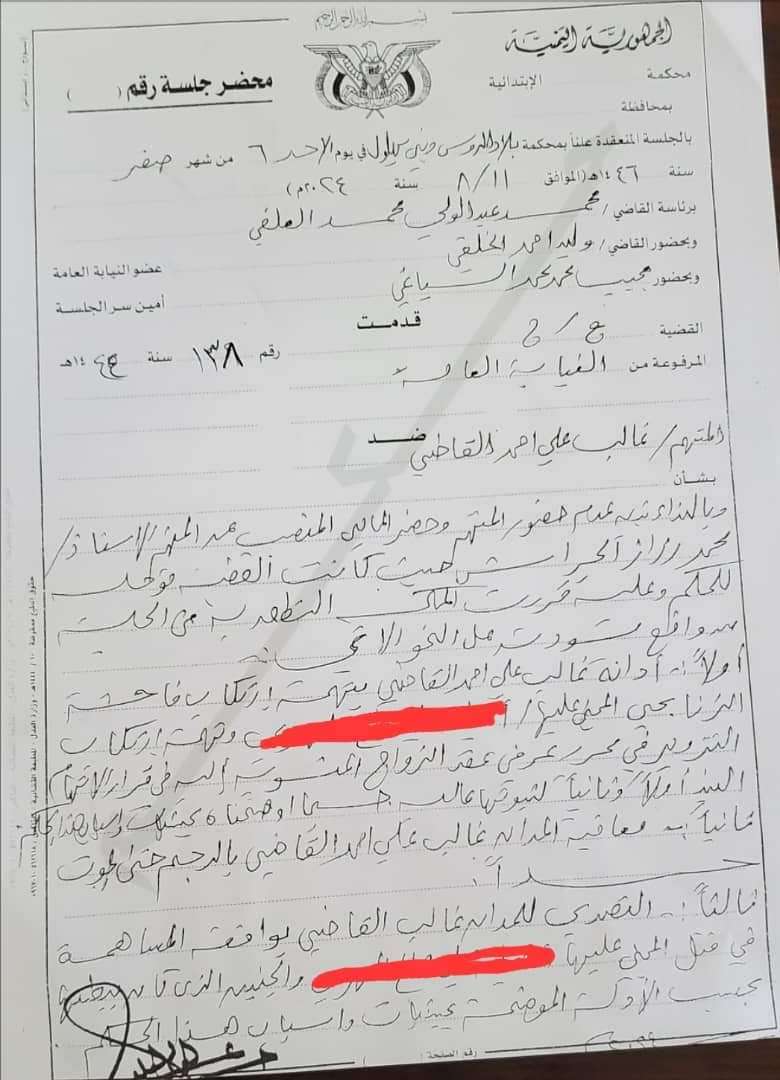 بسم الله الرحمن الرحيم
الجمهورية اليمنية
محكمة الإبتدائية
محضر جلسة رقم ( )
بمحافظة
بالجلسة المنعقدة علناً بمحكمة بلاد الروس وبني بهلول في يوم الاحد ٦ من شهر صفر
سنة ١٤٤٦هـ (الموافق ٨/١١ سنة ٢٠٢٤م)
برئاسة القاضي/ محمد عبدالولي محمد العلفي
وبحضور القاضي/ وليد احمد الخلقي عضو النيابة العامة
وبحضور مجيب محمد محمد السياغي أمين سر الجلسة
قدمت
القضية ج/ج رقم ١٣٨ سنة ١٤٤٥هـ
المرفوعة من النيابة العامة
ضد
المتهم/ غالب علي احمد القاضي
بشأن
وبالنداء تبين عدم حضور المتهم وحضر المحامي المنصب عن المتهم/ الاستاذ/
محمد الحراسي حيث كانت القضية مؤجلة
للحكم وعليه قررت المحكمة النطق به من الجلسة
من واقع مسودته على النحو الاتي:
أولاً:- أدانة غالب علي احمد القاضي بتهمة إرتكاب فاحشة
الزنا بحق المجني عليها/ وتهمة إرتكاب
التزوير في محرر عرفي عقد الزواج المنسوبة إليه في قرار الاتهام
البند أولاً وثانياً لثبوتها عليه حسبما اوضحناه بحيثيات واسباب هذا الحكم
ثانياً:- معاقبة المدان غالب علي احمد القاضي بالرجم حتى الموت
حداً.
ثالثاً:- التصدي للمدان غالب القاضي بواقعة المساهمة
في قتل المجني عليها والجنين الذي كان ببطنها
بحسب الأدلة الموضحة بحيثيات واسباب هذا الحكم
رقم الصفحة (